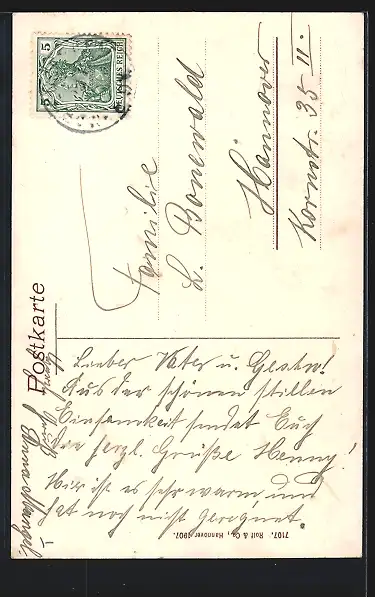 Postkarte
5 5
DEUTSCHES REICH
Familie
L. Bonewald
Hannover
Kornstr. 35 II.
Lieber Vater u. Geschw!
Aus der schönen stillen
Einsamkeit sendet Euch
die herzl. Grüße Henny!
Hier ist es sehr warm, und
hat noch nicht geregnet.
Gruß
Anna
7107. Rolf & Co., Hannover 1907.